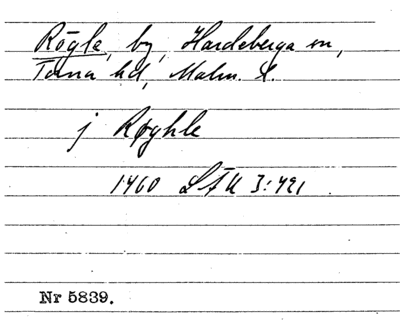 Rögla, by, Hardeberga sn,
Torna hd, Malm. l.
j Røghle
1460 LÄU 3:421
Nr 5839.